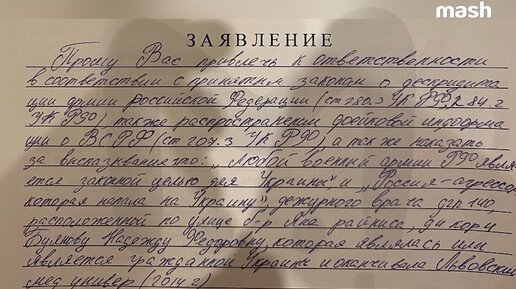 mash
ЗАЯВЛЕНИЕ
Прошу Вас привлечь к ответственности
в соответствии с принятым законом о
ции армии Российской Федерации (ст 280.3 УК РФ, 284.2
УК РФ) также распространении фейковой информа
ции о ВСРФ (ст 207.3 УК РФ), а так же наказать
за высказывание что: „Любой военный армии РФ явля
ется законной целью для Украины" и „Россия-агрессор
которая напала на Украину", дежурного врача дгп 140,
расположенной по улице б-р Яна райниса, д4 кор1
Буянову Надежду Федоровну, которая являлась или
является гражданкой Украины и оканчивала Львовский
мед универ (2014 г)